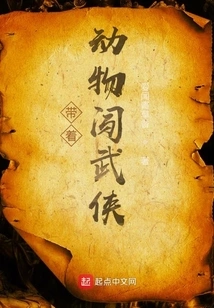 带着
动物闯武侠
著
起点中文网